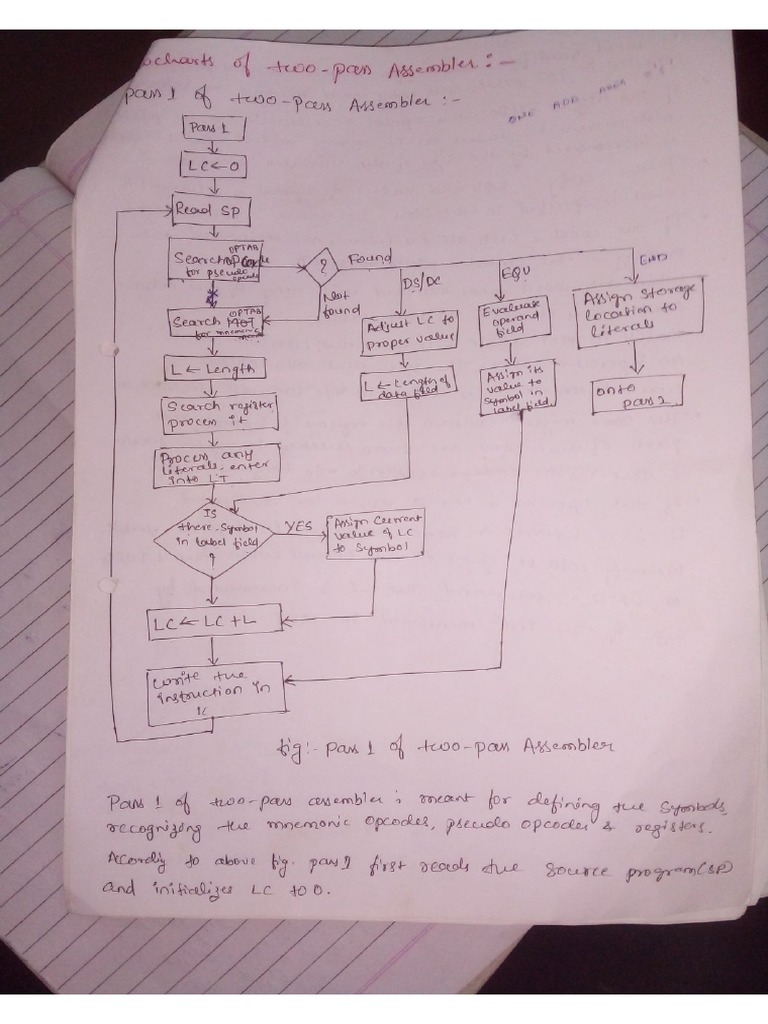 ocharts of two-pass Assembler:-
pass 1 of two-pass Assembler:-
ONE ADD
Pass 1
LC←0
Read SP
OPTAB
Search
for pseudo
?
Found
Not
found
DS/DC
EQU
END
OPTAB
Search MOT
for
Adjust LC to
proper value
Evaluate
operand
field
Assign storage
location to
literals
L ← Length
L ← Length of
data field
Assign its
value to
symbol in
label field
onto
pass 2
Search register
process it
Process any
literals, enter
into LT
Is
there symbol
in label field
?
YES
Assign current
value of LC
to symbol
LC ← LC + L
Write the
instruction in
fig:- pass 1 of two-pass Assembler
Pass 1 of two-pass assembler is meant for defining the symbols,
recognizing the mnemonic opcodes, pseudo opcodes & registers.
Accordig to above fig. pass 1 first reads the source program(SP)
and initializes LC to 0.